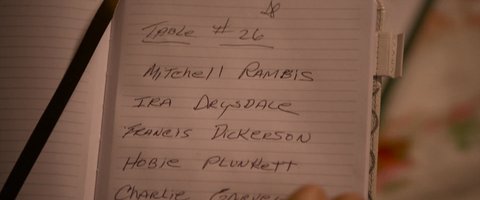 18
TABLE # 26
Mitchell RAMBIS
IRA DRYSDALE
FRANCIS DICKERSON
HOBIE PLUNKETT
Charlie